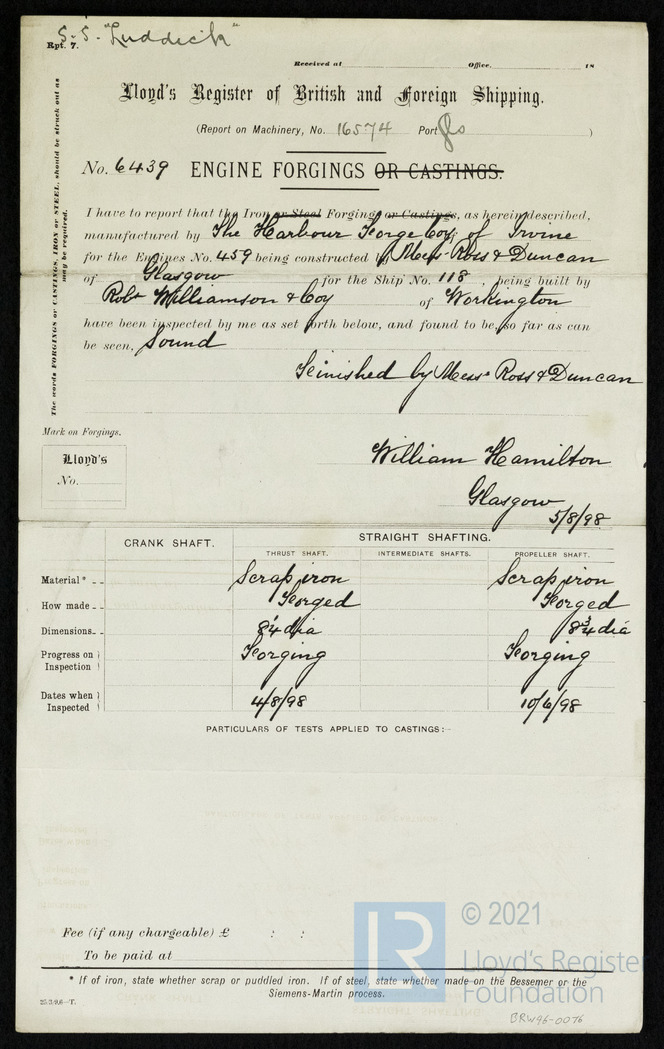 S.S. "Luddick"
Rpt. 7.
Received at Office. 18
Lloyd's Register of British and Foreign Shipping.
(Report on Machinery, No. 16574 Port Gls )
No. 6439 ENGINE FORGINGS OR CASTINGS.
The words FORGINGS or CASTINGS, IRON or STEEL, should be struck out as may be required.
I have to report that the Iron or Steel Forging or Castings, as herein described,
manufactured by The Harbour Forge Coy of Irvine
for the Engines No. 459 being constructed by Messrs Ross & Duncan
of Glasgow for the Ship No. 118, being built by
Robt Williamson & Coy of Workington
have been inspected by me as set forth below, and found to be, so far as can
be seen, Sound
Finished by Messrs Ross & Duncan
Mark on Forgings.
Lloyd's
No.
William Hamilton
Glasgow
5/8/98
CRANK SHAFT. STRAIGHT SHAFTING.
THRUST SHAFT. INTERMEDIATE SHAFTS. PROPELLER SHAFT.
Material* Scrap iron Scrap iron
How made Forged Forged
Dimensions 8 1/4 dia 8 3/4 dia
Progress on Inspection Forging Forging
Dates when Inspected 4/8/98 10/6/98
PARTICULARS OF TESTS APPLIED TO CASTINGS:—
Fee (if any chargeable) £ : :
To be paid at
* If of iron, state whether scrap or puddled iron. If of steel, state whether made on the Bessemer or the
Siemens-Martin process.
LR © 2021
Lloyd's Register
Foundation
BRW96-0076